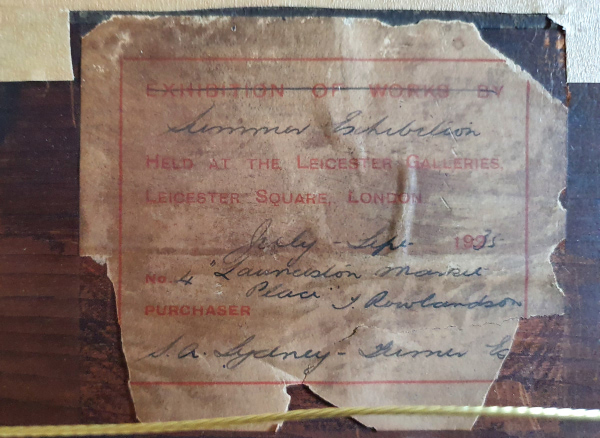 EXHIBITION OF WORKS BY
Summer Exhibition
HELD AT THE LEICESTER GALLERIES,
LEICESTER SQUARE, LONDON
July - Sept 1935
No. 4 "Launceston Market
Place" T. Rowlandson
PURCHASER
S. A. Sydney - Turner Es